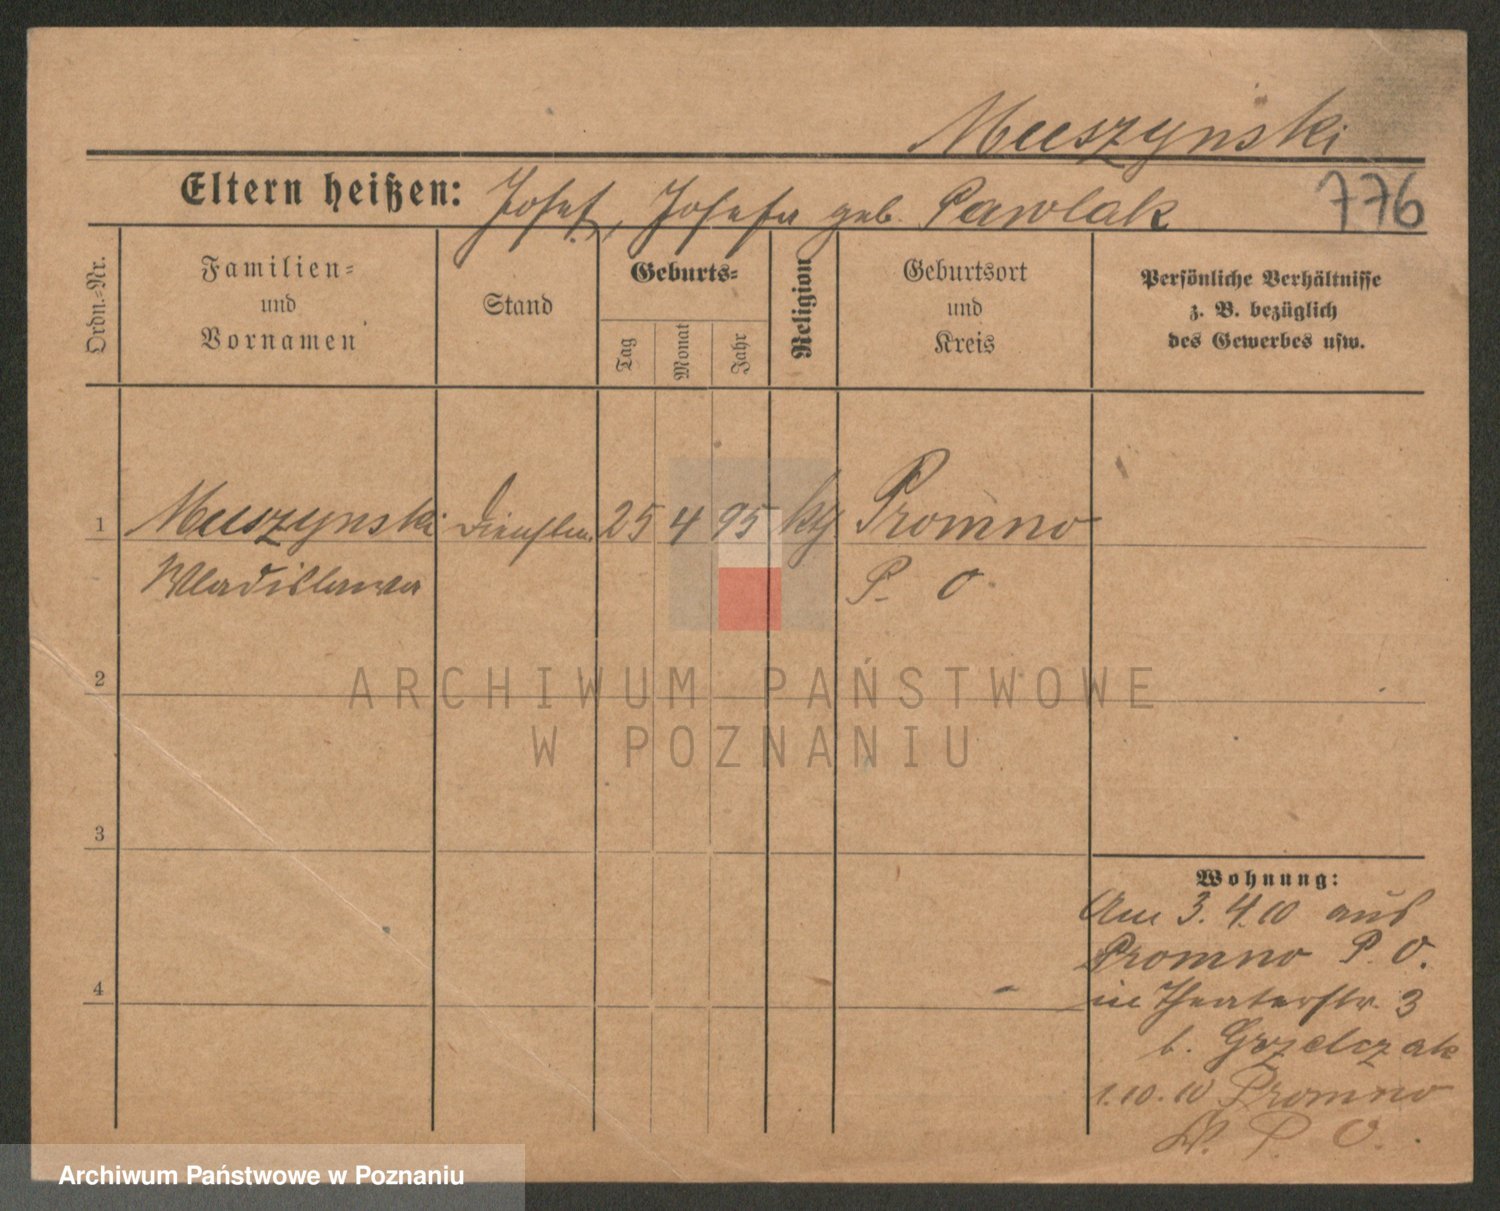 Muszynski
Eltern heißen: Josef, Josefa geb. Pawlak
776
Ordn.-Nr.
Familien-
und
Vornamen
Stand
Geburts-
Tag
Monat
Jahr
Religion
Geburtsort
und
Kreis
Persönliche Verhältnisse
z. B. bezüglich
des Gewerbes usw.
1 Muszynski Dienstm. 25 4 95 kth Promno
Wladislawa P. O.
2
ARCHIWUM PAŃSTWOWE
W POZNANIU
3
Wohnung:
Am 3.4.10 aus
Promno P. O.
4
in Theaterstr. 3
b. Grzelczak
1.10.10 Promno
P. O.
Archiwum Państwowe w Poznaniu